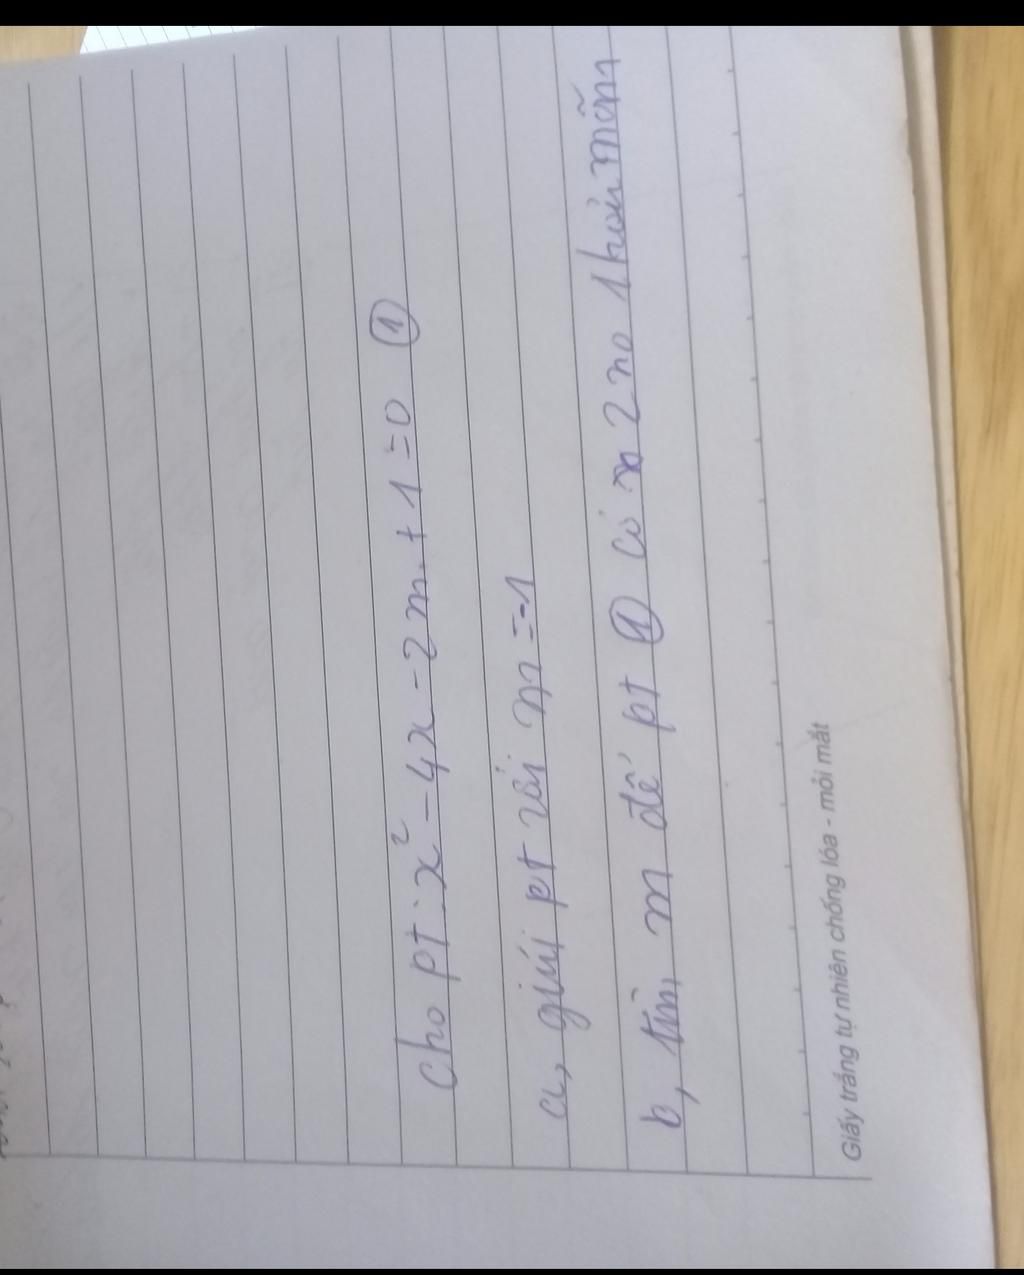 Cho pt: x² - 4x - 2m + 1 = 0 ①
a, giải pt với m = -1
b, tìm m để pt ① có 2 no thỏa mãn
Giấy trắng tự nhiên chống lóa - mỏi mắt